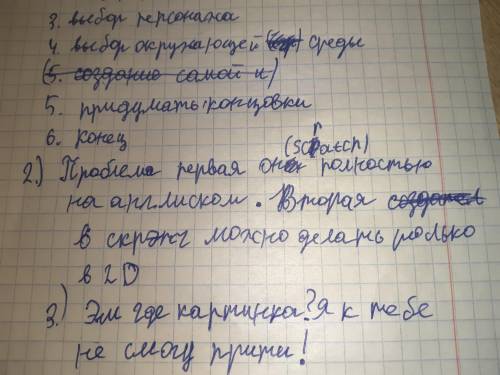 3. выбор персонажа
4. выбор окружающей среды
(5. создание самой и)
5. придумать концовки
6. конец
(scratch)
2.) Проблема первая он полностью
на английском. Вторая
в скрэтч можно делать только
в 2D
3.) Эм где картинка? Я к тебе
не смогу прити!